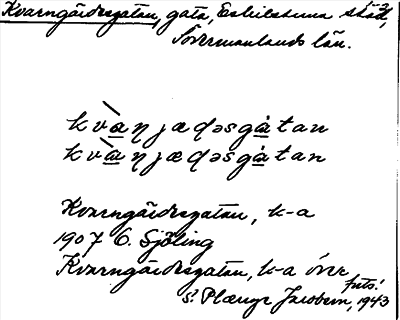 Kvarngärdesgatan, gata, Eskilstuna stad,
Södermanlands län.
kvàŋjædəsgàtan
kvàŋjædəsgàtan
Kvarngärdesgatan, k-a
1907 C. Sjöling
Kvarngärdesgatan, k-a över
forts.
S. Jacobson, 1943